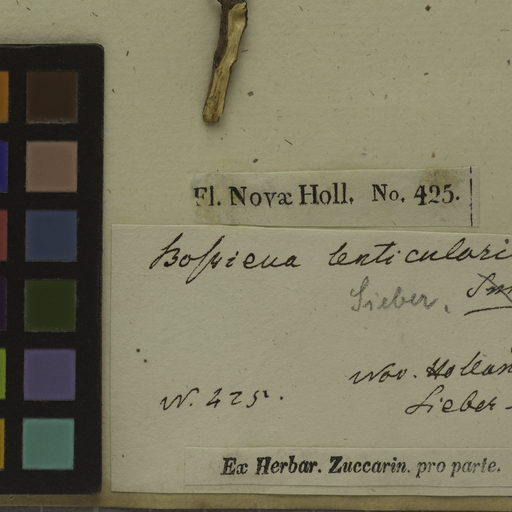 Fl. Novæ Holl. No. 425.
Bossieua lenticulari
Sieber. Sm
Nov. Hollan
N. 425.
Sieber
Ex Herbar. Zuccarin. pro parte.